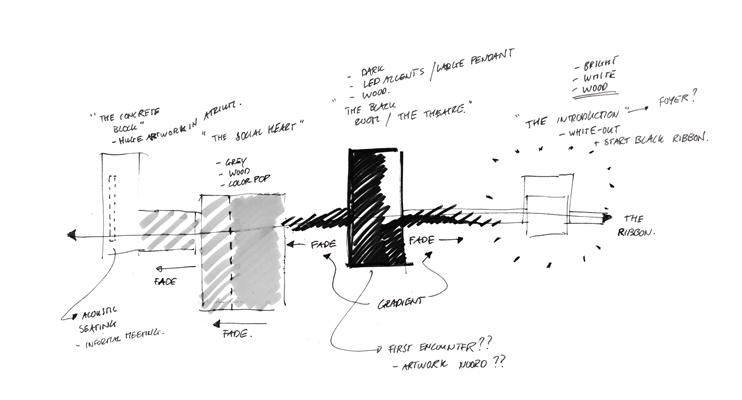 "THE CONCRETE
BLOCK"
- HUGE ARTWORK IN ATRIUM.
"THE SOCIAL HEART"
- GREY
- WOOD
- COLOR POP
- DARK
- LED ACCENTS / LARGE PENDANT
- WOOD.
"THE BLACK
BOX / THE THEATRE."
- BRIGHT
- WHITE
- WOOD
"THE INTRODUCTION" → FOYER?
- WHITE-OUT
+ START BLACK RIBBON.
THE
RIBBON.
FADE
FADE
FADE
FADE.
GRADIENT
ACOUSTIC
SEATING
- INFORMAL MEETING.
FIRST ENCOUNTER??
- ARTWORK NOORD??